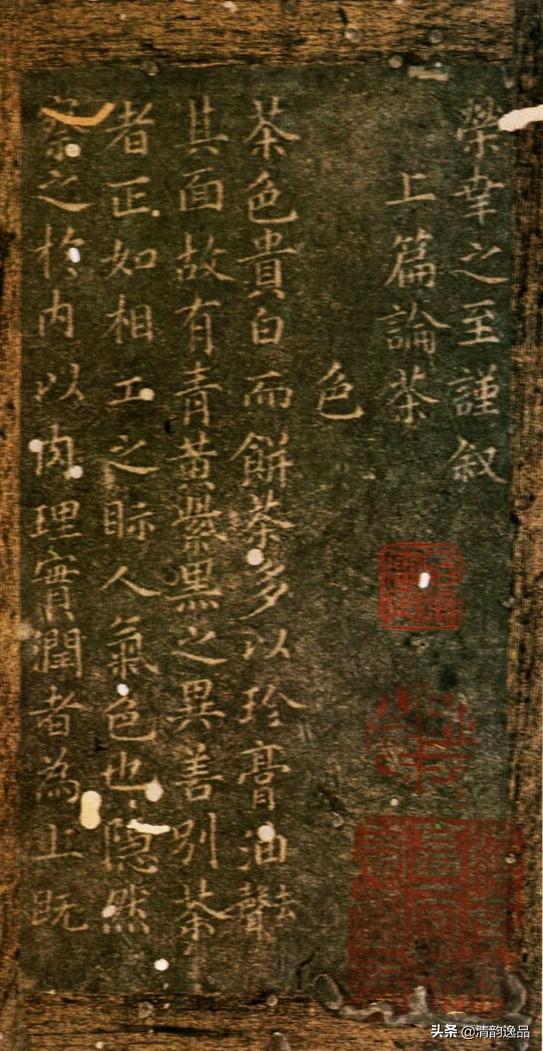 榮幸之至謹叙
上篇論茶
色
茶色貴白而餅茶多以珍膏油去聲
其面故有青黄紫黑之異善别茶
者正如相工之眎人氣色也隱然
察之於内以肉理實潤者為上既
头条 @清韵逸品